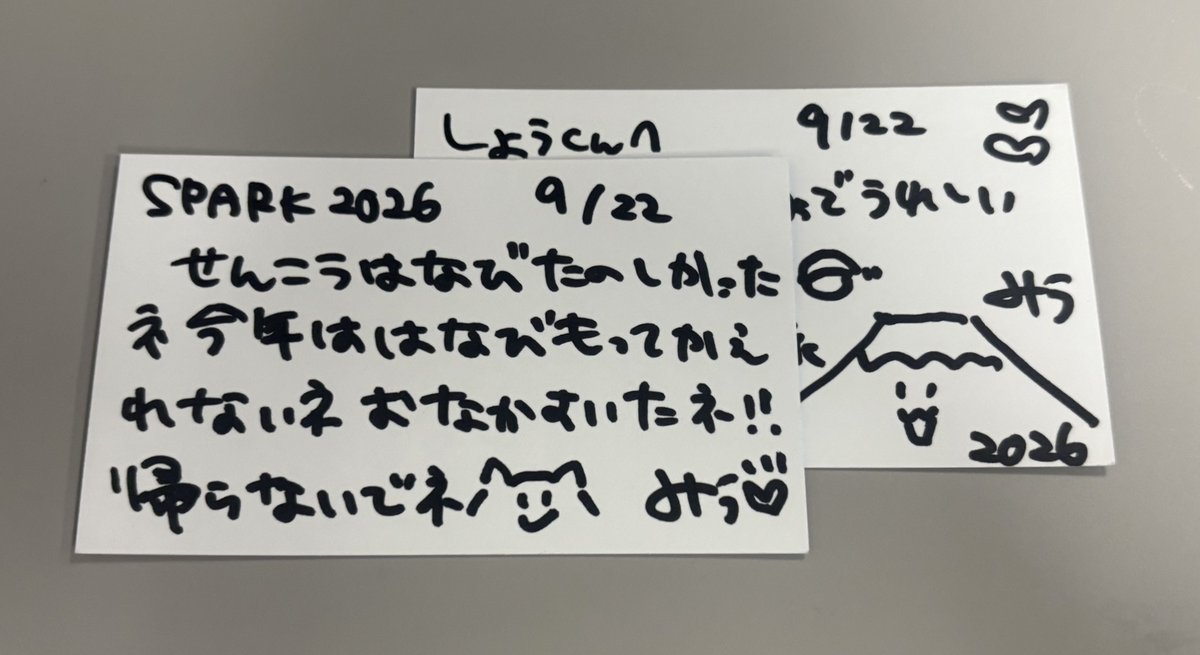 SPARK 2026 9/22
せんこうはなびたのしかった
ネ今年ははなびもってかえ
れないネ おなかすいたネ!!
帰らないでネ みう
しょうくんへ 9/22
でうれしい
みう
2026